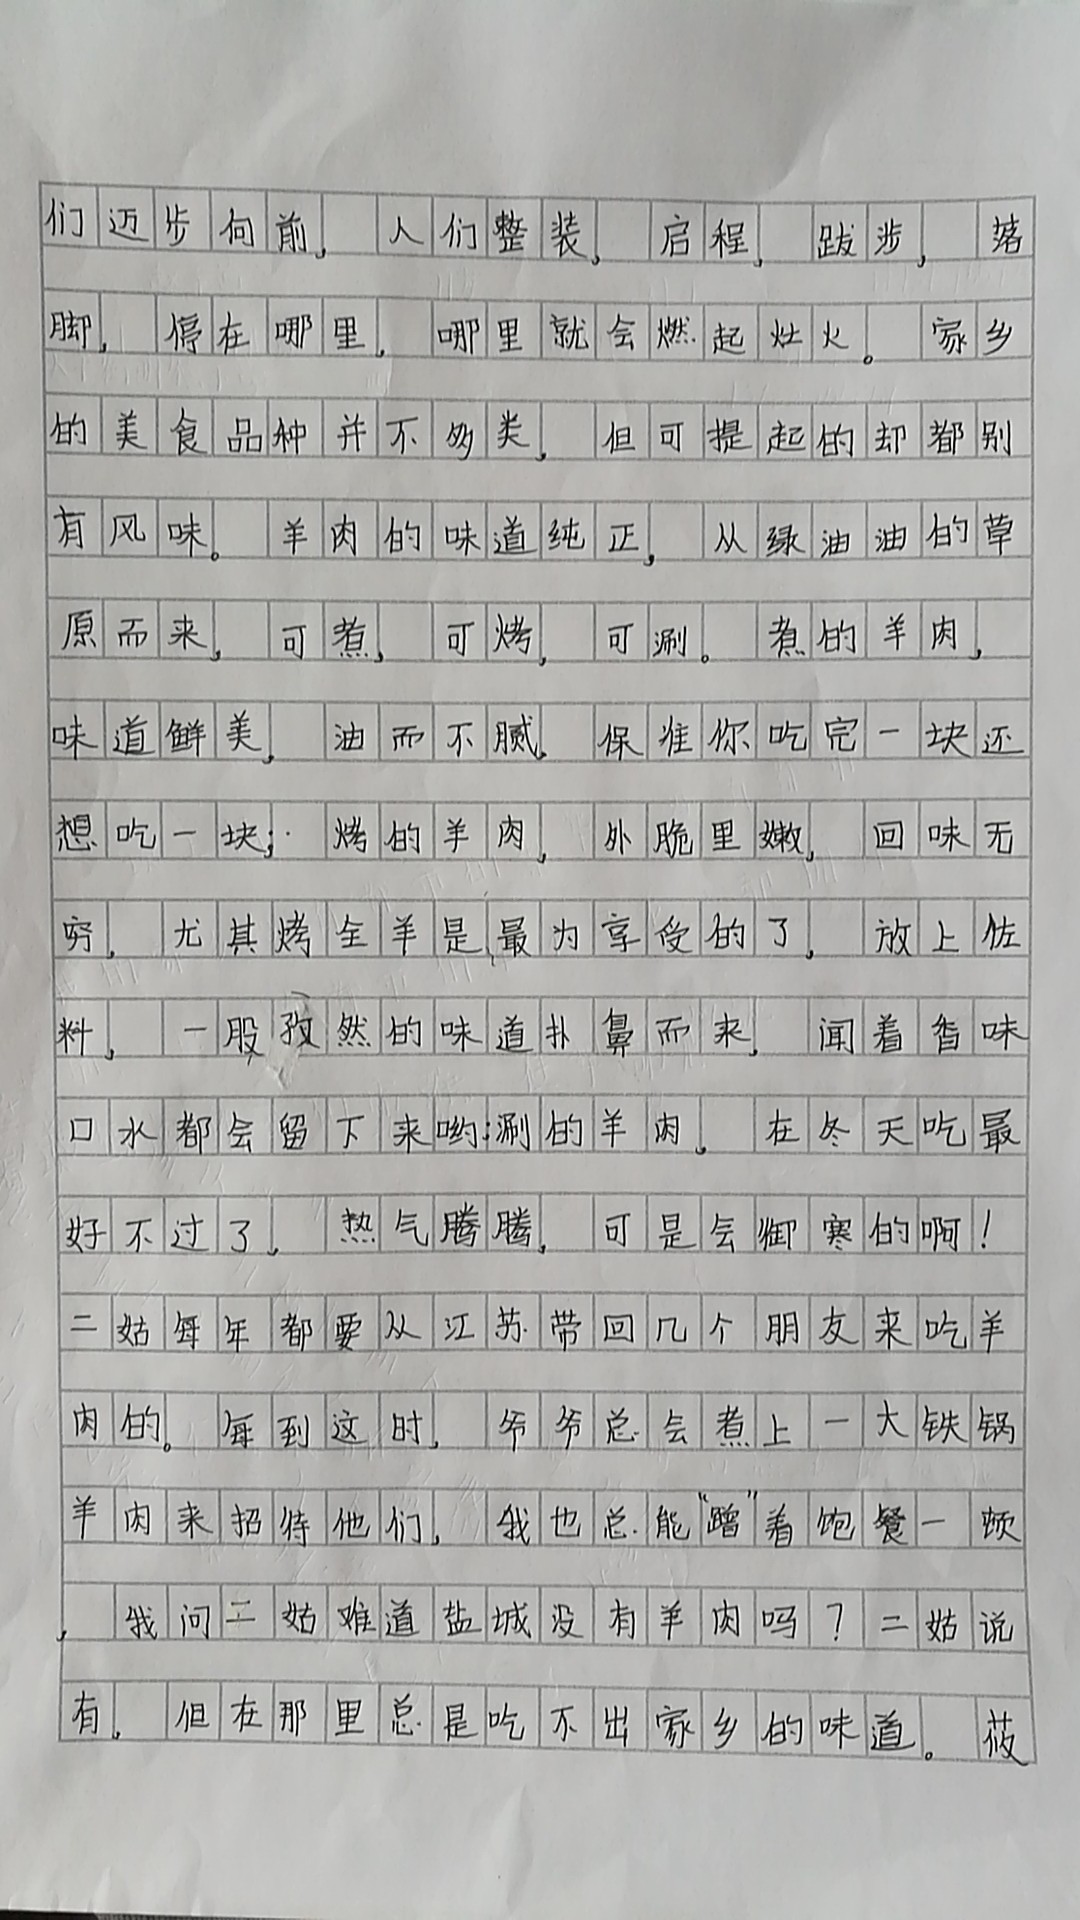 们迈步向前，人们整装，启程，跋涉，落
脚，停在哪里，哪里就会燃起灶火。家乡
的美食品种并不多类，但可提起的却都别
有风味。羊肉的味道纯正，从绿油油的草
原而来，可煮，可烤，可涮。煮的羊肉，
味道鲜美，油而不腻，保准你吃完一块还
想吃一块；烤的羊肉，外脆里嫩，回味无
穷，尤其烤全羊是最为享受的了，放上佐
料，一股孜然的味道扑鼻而来，闻着香味
口水都会留下来哟；涮的羊肉，在冬天吃最
好不过了，热气腾腾，可是会御寒的啊！
二姑每年都要从江苏带回几个朋友来吃羊
肉的。每到这时，爷爷总会煮上一大铁锅
羊肉来招待他们，我也总能“蹭”着饱餐一顿
，我问二姑难道盐城没有羊肉吗？二姑说
有，但在那里总是吃不出家乡的味道。莜